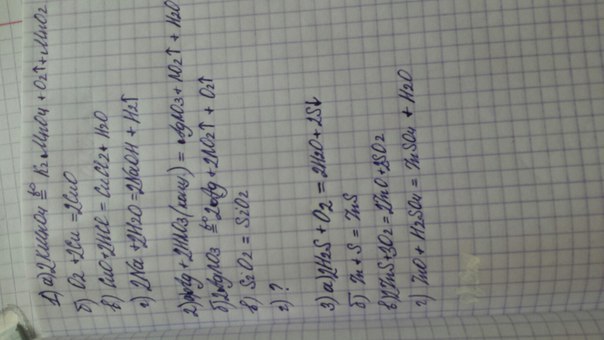 1) а) 2KMnO4 t°= K2MnO4 + O2↑ + MnO2
б) O2 + 2Cu = 2CuO
в) CuO + 2HCl = CuCl2 + H2O
г) 2Na + 2H2O = 2NaOH + H2↑
2) а) Ag + 2HNO3 (конц) = AgNO3 + NO2↑ + H2O
б) 2AgNO3 t°= 2Ag + 2NO2↑ + O2↑
в) S2O2 = S2O2
г) ?
3) а) 2H2S + O2 = 2H2O + 2S↓
б) Zn + S = ZnS
в) 2ZnS + 3O2 = 2ZnO + 2SO2
г) ZnO + H2SO4 = ZnSO4 + H2O